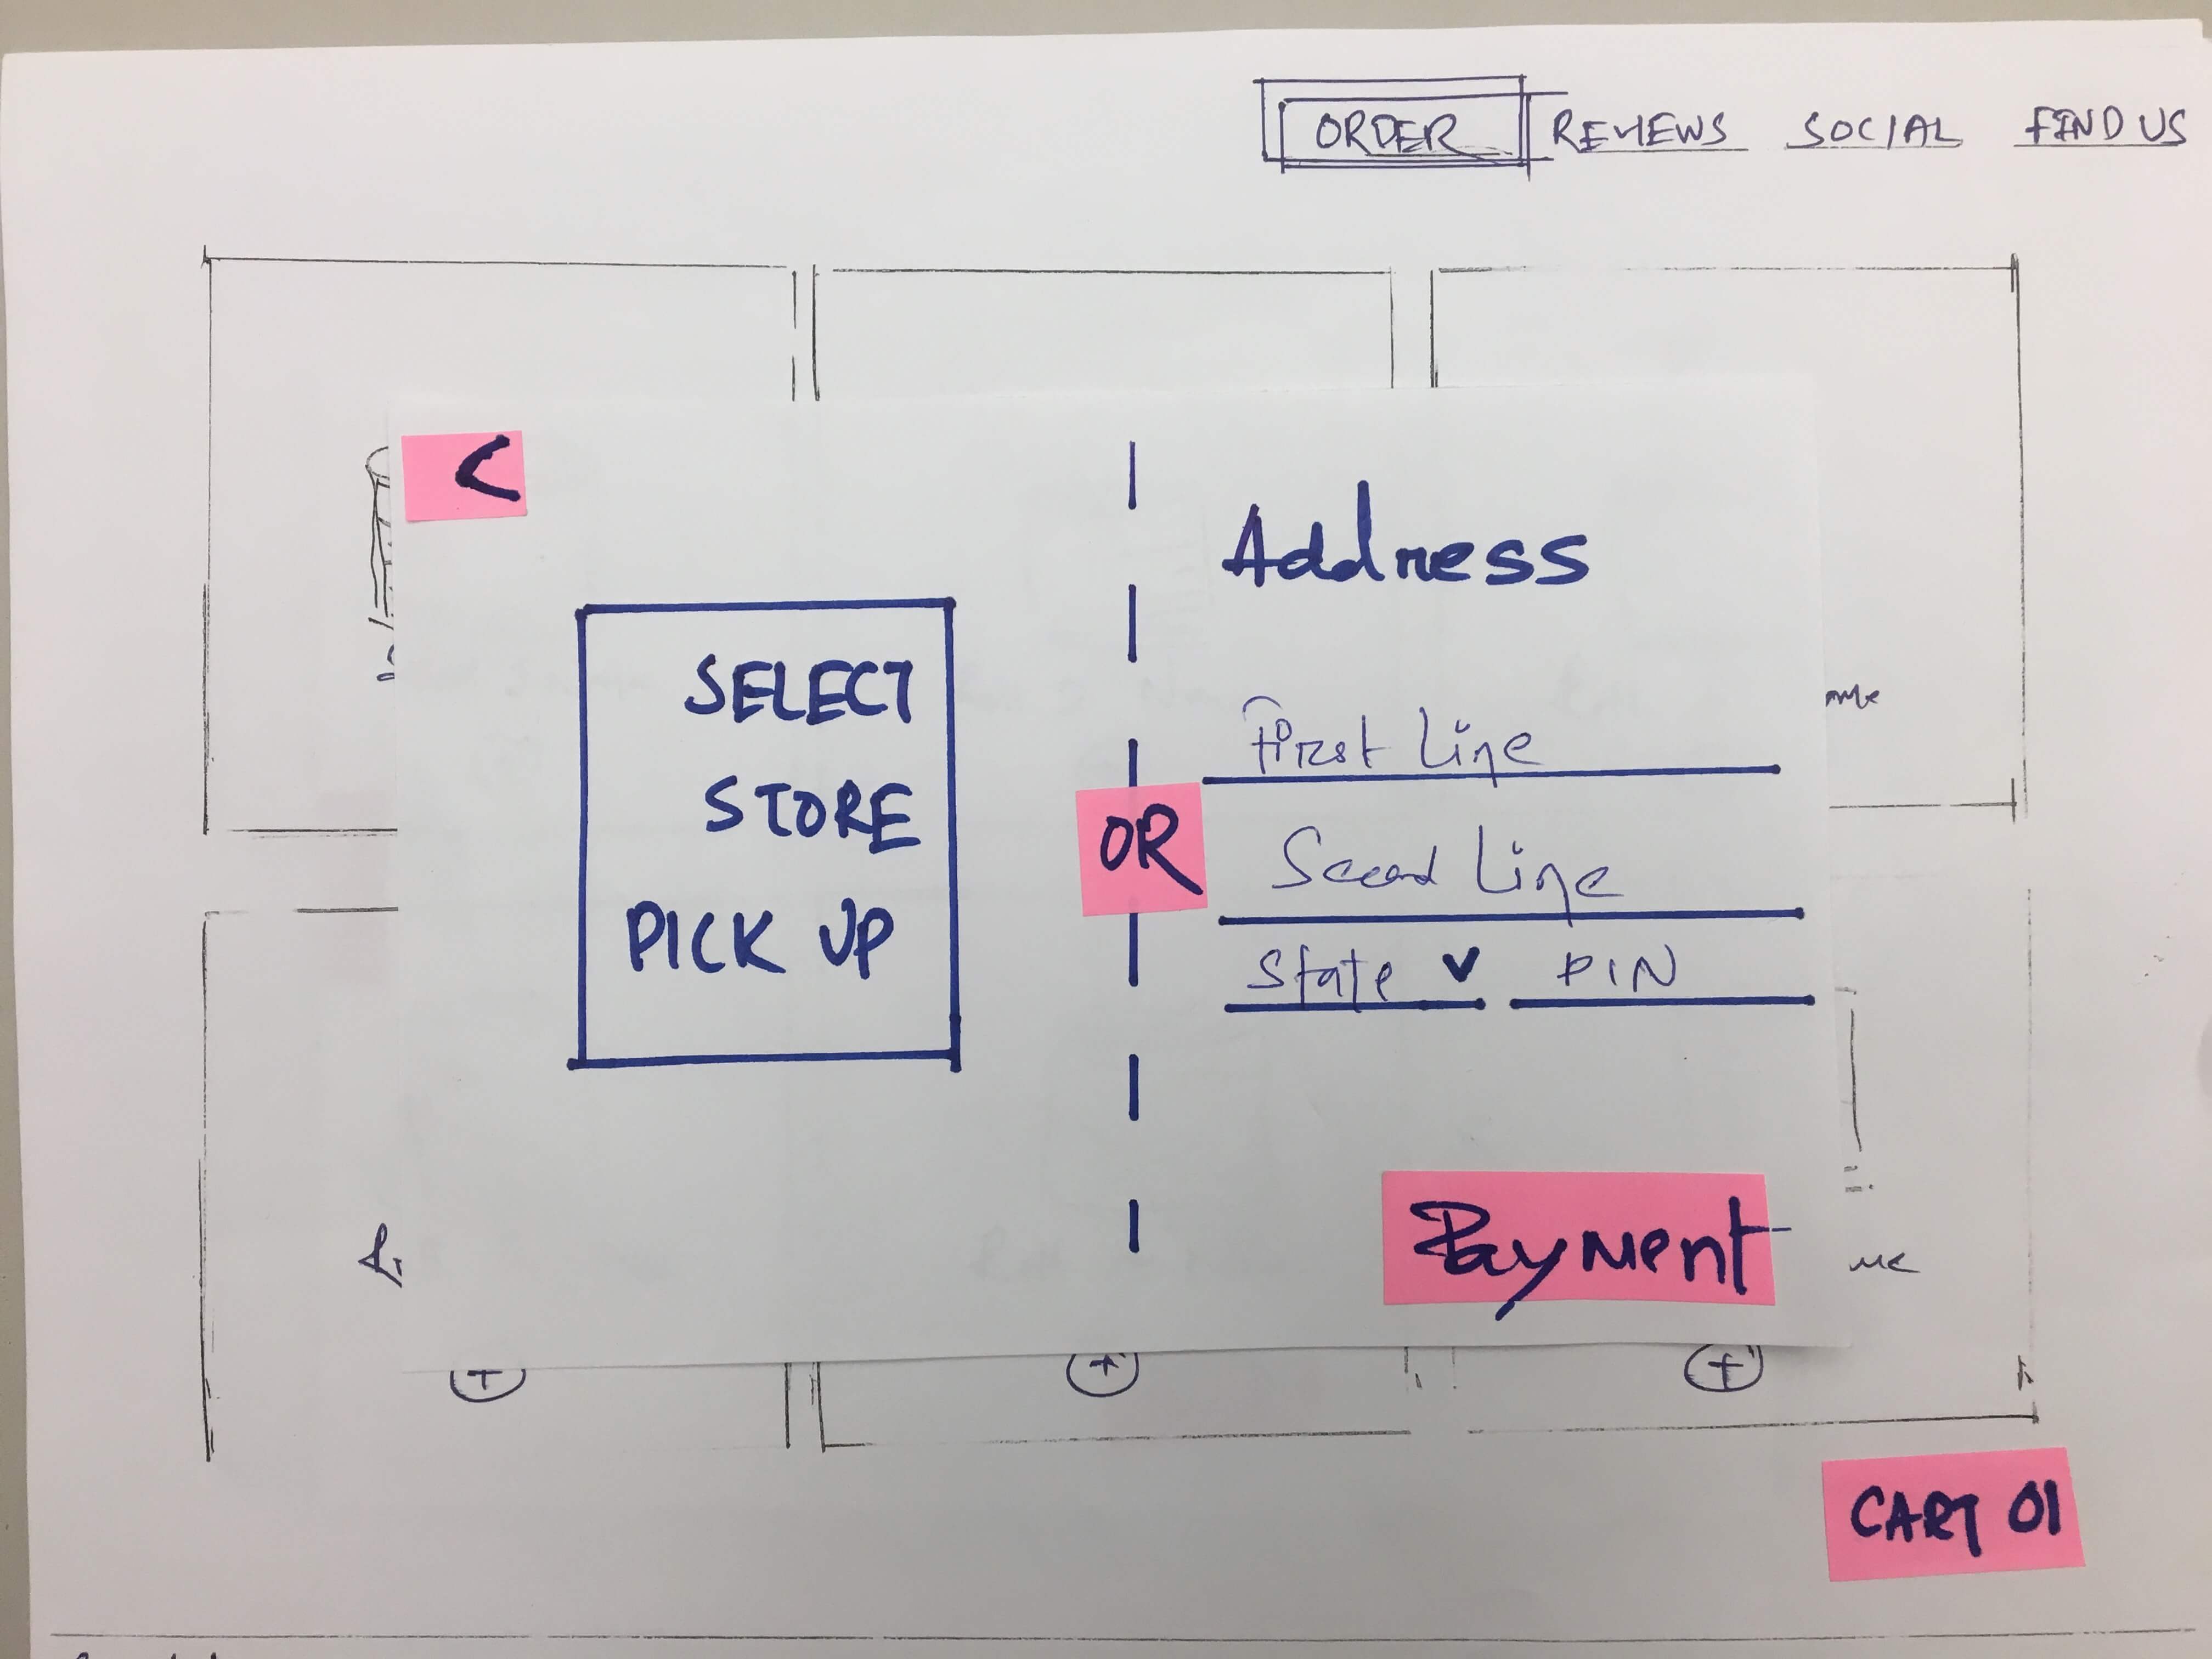 ORDER REVIEWS SOCIAL FIND US
<
SELECT
STORE
PICK UP
OR
Address
First Line
Second Line
State v PIN
Payment
CART 01